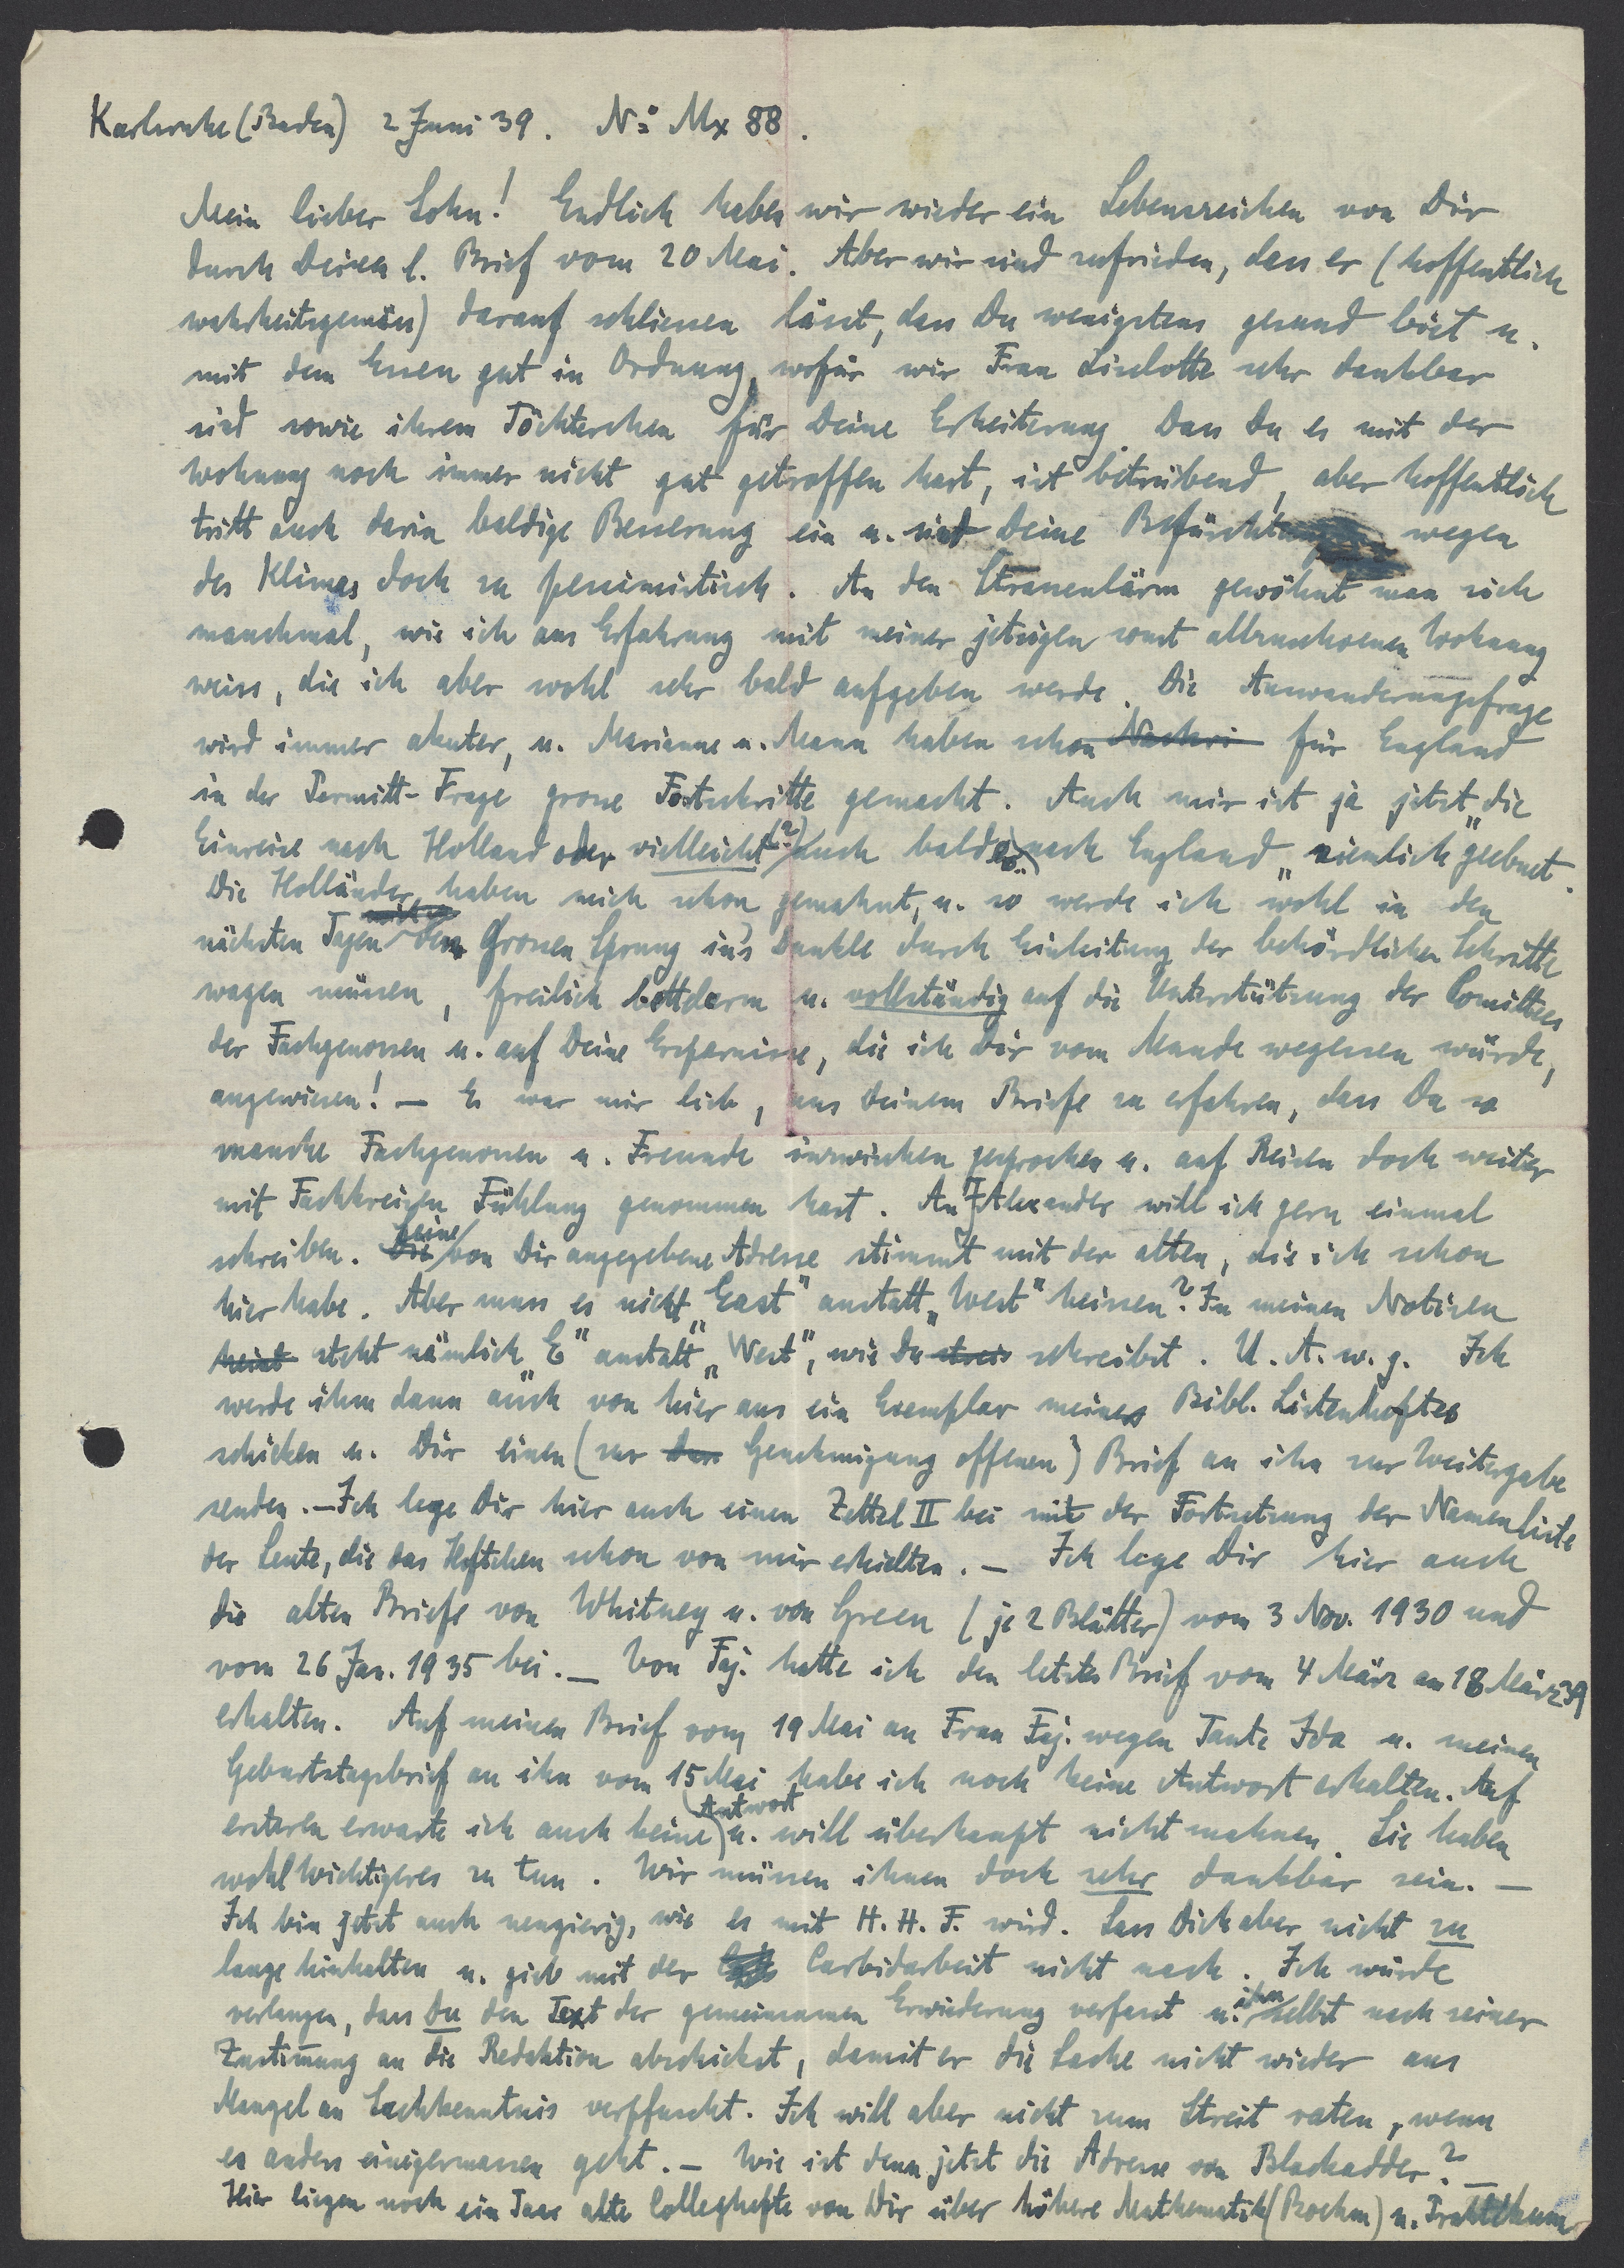 Karlsruhe (Baden) 2 Juni 39. No Mx 88.
Mein lieber Sohn! Endlich haben wir wieder ein Lebenszeichen von Dir
durch Deinen l. Brief vom 20 Mai. Aber wir sind zufrieden, dass er (hoffentlich
wahrheitsgemäss) darauf schliessen lässt, dass Du wenigstens gesund bist u.
mit dem Essen gut in Ordnung, wofür wir Frau Liselotte sehr dankbar
sind sowie ihrem Töchterchen für Deine Erheiterung. Dass Du es mit der
Wohnung noch immer nicht gut getroffen hast, ist betrübend, aber hoffentlich
tritt auch darin baldige Besserung ein u. sind Deine Befürchtungen wegen
des Klimas doch zu pessimistisch. An den Strassenlärm gewöhnt man sich
manchmal, wie ich aus Erfahrung mit meiner jetzigen sonst allzuschoenen Wohnung
weiss, die ich aber wohl sehr bald aufgeben werde. Die Auswanderungsfrage
wird immer akuter, u. Marianne u. Mann haben schon Nachri für England
in der Permitt-Frage grosse Fortschritte gemacht. Auch mir ist ja jetzt „die
Einreise nach Holland oder vielleicht (?) auch bald nach England" ziemlich geebnet.
Die Holländer haben mich schon gemahnt, u. so werde ich wohl in den
nächsten Tagen den Grossen Sprung in's Dunkle durch Einleitung der behördlichen Schritte
wagen müssen, freilich bettelarm u. vollständig auf die Unterstützung der Comittees
der Fachgenossen u. auf Deine Ersparnisse, die ich Dir vom Munde wegessen würde,
angewiesen! — Es war mir lieb, aus Deinem Briefe zu erfahren, dass Du so
manche Fachgenossen u. Freunde inzwischen gesprochen u. auf Reisen doch weiter
mit Fachkreisen Fühlung genommen hast. An J. Alexander will ich gern einmal
schreiben. Die Deine von Dir angegebene Adresse stimmt mit der alten, die ich schon
hier habe. Aber muss es nicht „East" anstatt „West" heissen? In meinen Notizen
heisst steht nämlich „E" anstatt „West", wie Du schreibst. U. A. w. g. Ich
werde ihm dann auch von hier aus ein Exemplar meines Bibl. Listenheftes
schicken u. Dir einen (zur Genehmigung offenen) Brief an ihn zur Weitergabe
senden. — Ich lege Dir hier auch einen Zettel II bei mit der Fortsetzung der Namenliste
der Leute, die das Heftchen schon von mir erhielten. — Ich lege Dir hier auch
die alten Briefe von Whitney u. von Green (je 2 Blätter) vom 3 Nov. 1930 und
vom 26 Jan. 1935 bei. — Von Faj. hatte ich den letzten Brief vom 4 März am 18 März 39
erhalten. Auf meinen Brief vom 19 Mai an Frau Faj. wegen Tante Ida u. meinen
Geburtstagsbrief an ihn vom 15 Mai habe ich noch keine Antwort erhalten. Auf
ersteren erwarte ich auch keine (Antwort) u. will überhaupt nicht mahnen. Sie haben
wohl Wichtigeres zu tun. Wir müssen ihnen doch sehr dankbar sein. —
Ich bin jetzt auch neugierig, wie es mit H. H. F. wird. Lass Dich aber nicht zu
lange hinhalten u. gieb mit der Carbidarbeit nicht nach. Ich würde
verlangen, dass Du den Text der gemeinsamen Erwiederung verfasst u. ihn selbst nach seiner
Zustimmung an die Redaktion abschickst, damit er die Sache nicht wieder aus
Mangel an Sachkenntnis verpfuscht. Ich will aber nicht zum Streit raten, wenn
es anders einigermassen geht. — Wie ist denn jetzt die Adresse von Blackadder? —
Hier liegen noch ein Paar alte Colleghefte von Dir über höhere Mathematik (Boehm) u. Praktikum